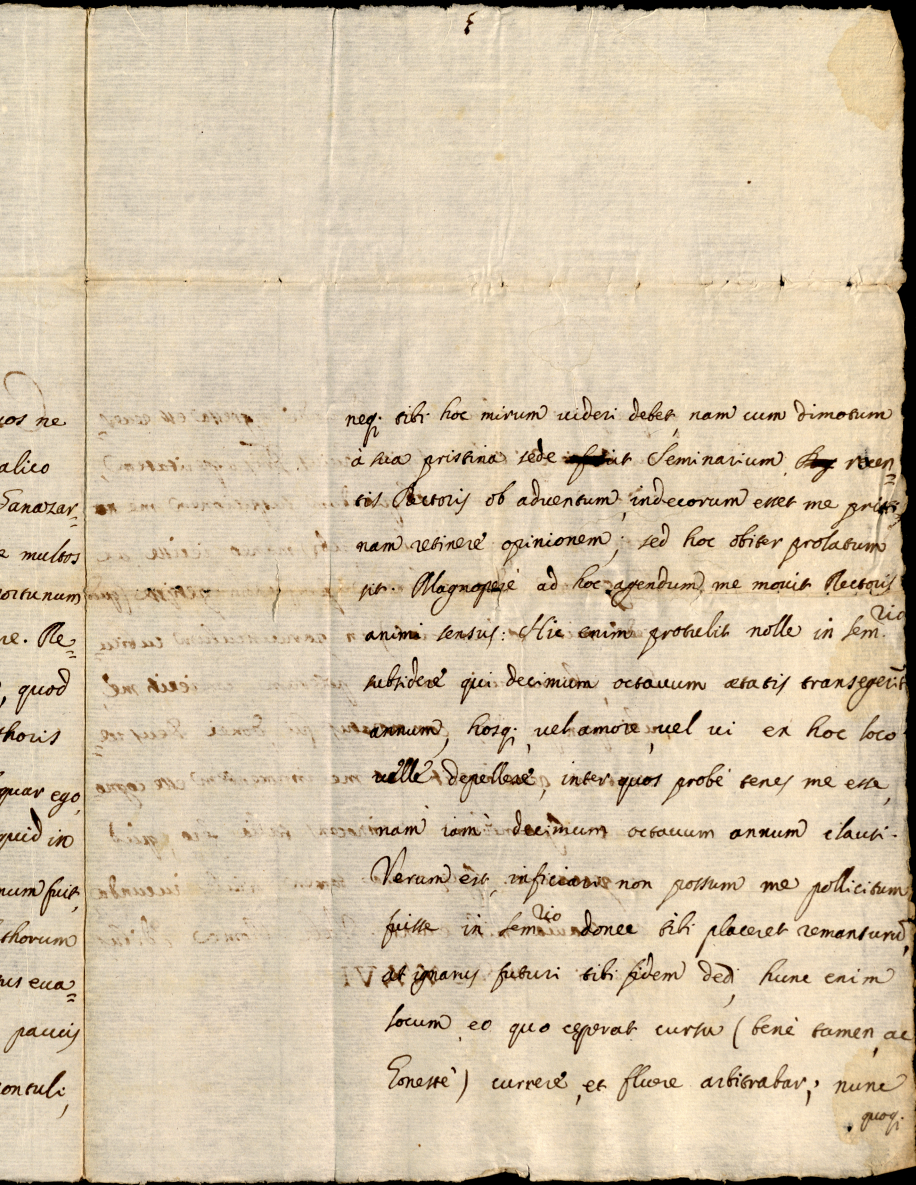 ios ne
alico
Sanazar=
e multos
portunum
re. Re=
, quod
thoris
quar ego,
quid in
num fuit,
thorum
tus eua=
paucis
ontuli,
neq; tibi hoc mirum uideri debet, nam cum dimotum
à sua pristina sede sit Seminarium recen=
tis Rectoris ob aduentum, indecorum esset me pristi=
nam retinere opinionem; sed hoc obiter prolatum
sit. Magnopere ad hoc agendum me mouit Rectoris
animi sensus: Hic enim protulit nolle in Sem.rio
subsidere qui decimum octauum ætatis transegerit
annum, hosq; uel amore, uel ui ex hoc loco
uelle depellere, inter quos probè tenes me esse,
nam iam decimum octauum annum clausi.
Verum est, inficiari non possum me pollicitum
fuisse in Semrio donec tibi placeret remansurũ,
at ignarus futuri tibi fidem dedi, hunc enim
locum eo quo cęperat cursu (benè tamen, ac
honestè) currere, et fluere arbitrabar; nunc
quoq;